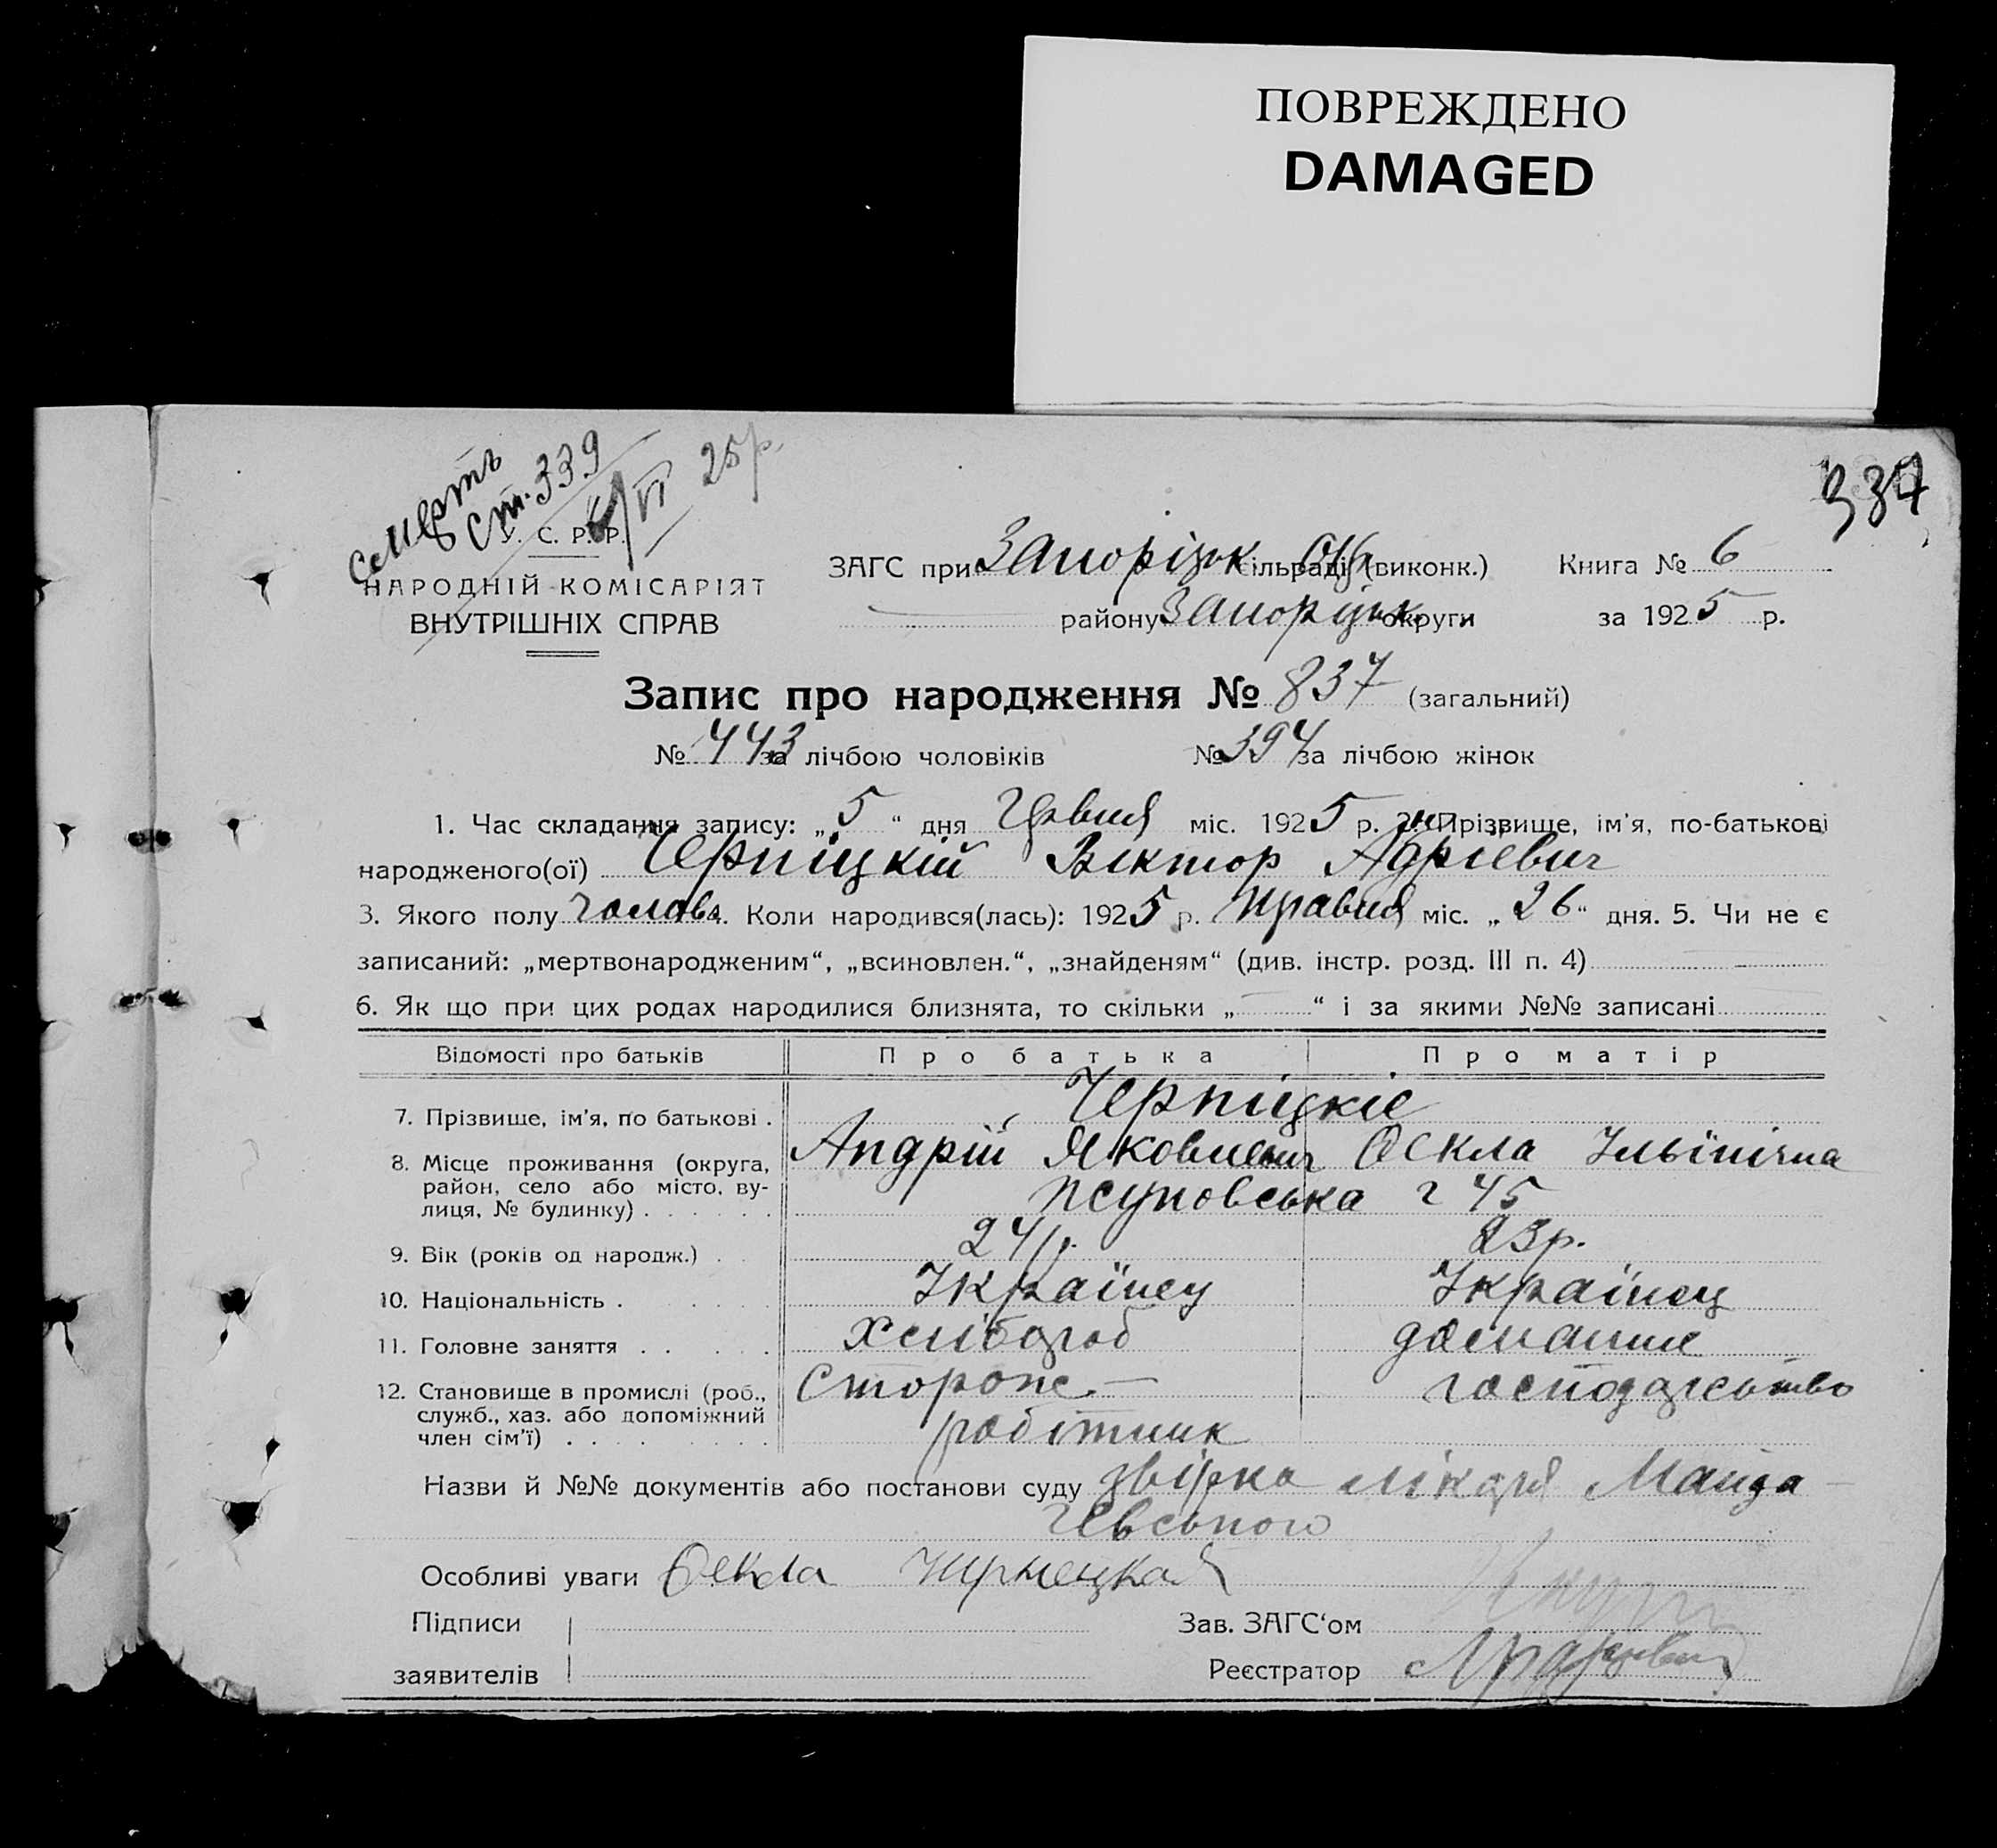 ПОВРЕЖДЕНО
DAMAGED
337
смерть
Ст. 339
6/VI 25р.
У. С. Р. Р.
НАРОДНІЙ КОМІСАРІЯТ
ВНУТРІШНІХ СПРАВ
ЗАГС при Запоріzьк Окр сільраді (виконк.) Книга № 6
району Запорізьк. округи за 1925 р.
Запис про народження № 837 (загальний)
№ 443 за лічбою чоловіків № 394 за лічбою жінок
1. Час складання запису: „5“ дня Червня міс. 1925 р. 2. Прізвище, ім'я, по-батькові
народженого(ої) Черніцкій Віктор Адрієвич
3. Якого полу чолов. 4. Коли народився(лась): 1925 р. травня міс. „26“ дня. 5. Чи не є
записаний: „мертвонародженим“, „всиновлен.“, „знайденям“ (див. інстр. розд. III п. 4)
6. Як що при цих родах народилися близнята, то скільки „ “ і за якими №№ записані
Відомості про батьків Про батька Про матір
7. Прізвище, ім'я, по батькові . Черніцкіе
Андрій Яковлевич Фекла Ільїнічна
8. Місце проживання (округа,
район, село або місто, ву-
лиця, № будинку) . . . . . . 45
9. Вік (років од народж.) . . 24 р. 23 р.
10. Національність . Українец Українец
11. Головне заняття . . . . . Хлібороб домашнє
12. Становище в промислі (роб., Сторож. — господарство
служб., хаз. або допоміжний
член сім'ї) . . . . . . . . робітник
Назви й №№ документів або постанови суду звірка лікаря Манда-
чевського
Особливі уваги Фекла Чернецкая
Підписи Зав. ЗАГС'ом
заявителів Реєстратор